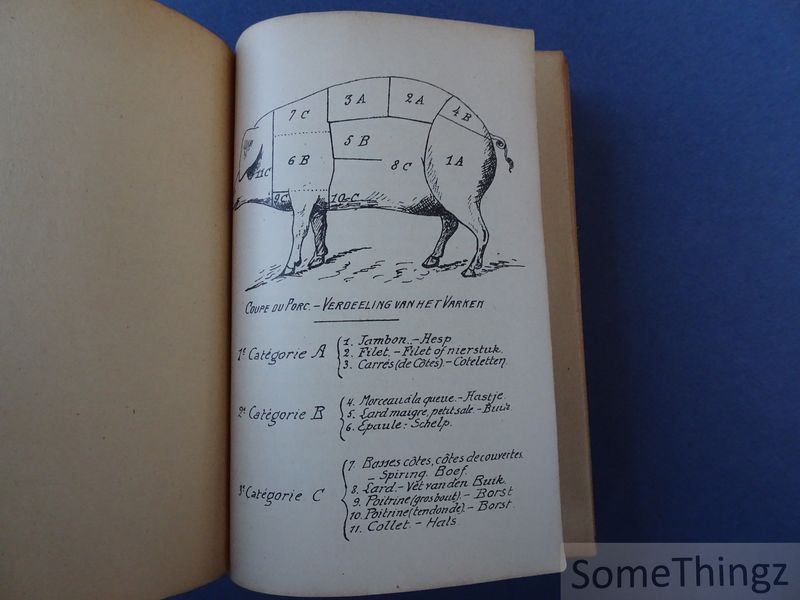 3 A
2 A
7 C
4 B
5 B
6 B
8 C
1 A
11 C
9 C
10-C
COUPE DU PORC. – VERDEELING VAN HET VARKEN
1e Catégorie A
1. Jambon. – Hesp
2. Filet. – Filet of nierstuk.
3. Carrés (de Côtes). – Coteletten.
2e Catégorie B
4. Morceau à la queue. – Hastje.
5. Lard maigre, petit sale. – Buik
6. Epaule – Schelp.
3e Catégorie C
7. Basses côtes, côtes decouvertes.
– Spiring. Boef.
8. Lard. – Vet van den Buik.
9. Poitrine (gros bout) – Borst
10. Poitrine (tendon de). – Borst.
11. Collet. – Hals
SomeThingz